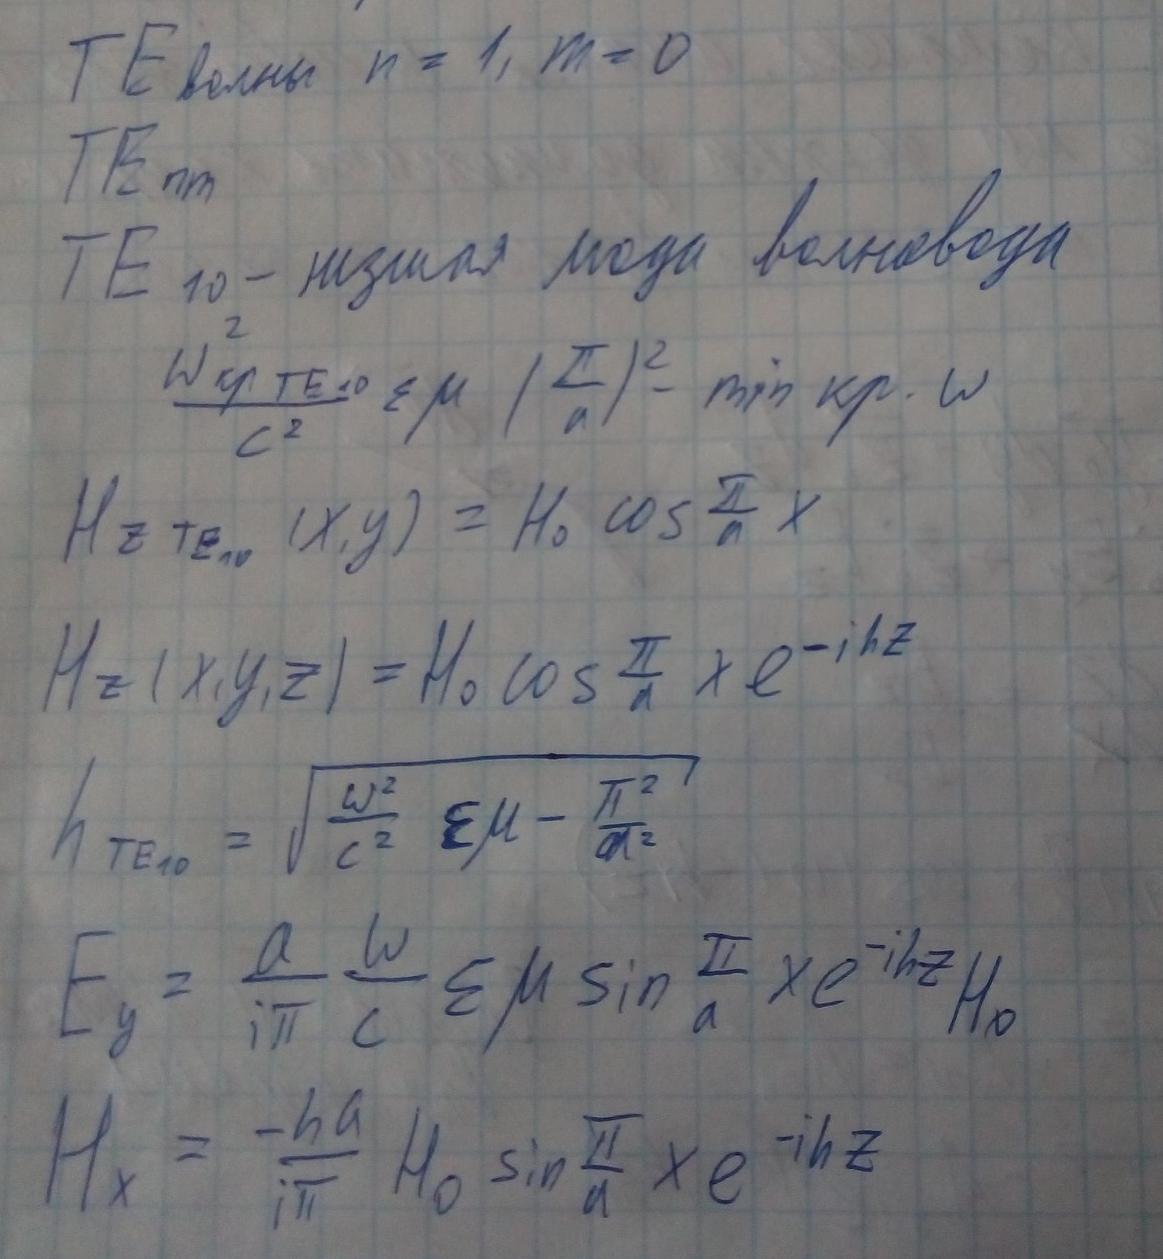 TE волны n = 1, m = 0
TE nm
TE 10 – низшая мода волновода
ω² кр TE10 / c² εμ (π/a)² – min кр. ω
Hz TE10 (x,y) = H0 cos π/a x
Hz(x,y,z) = H0 cos π/a x e^-ihz
h TE10 = √(ω²/c² εμ – π²/a²)
Ey = a/iπ ω/c εμ sin π/a x e^-ihz H0
Hx = -ha/iπ H0 sin π/a x e^-ihz